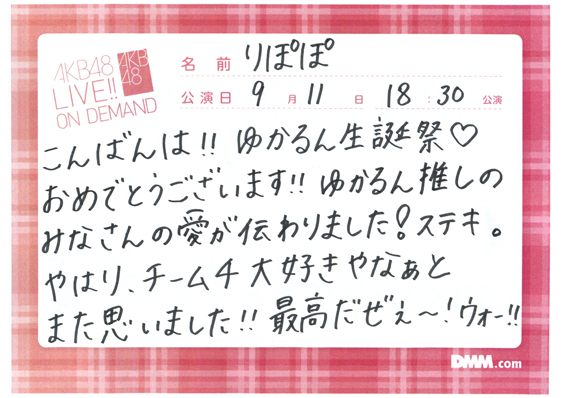 AKB48
LIVE!!
ON DEMAND
AKB
48
名前 りぽぽ
公演日 9月11日 18:30公演
こんばんは!! ゆかるん生誕祭♡
おめでとうございます!! ゆかるん推しの
みなさんの愛が伝わりました!ステキ。
やはり、チーム4大好きやなぁと
また思いました!! 最高だぜぇ〜!ウォー!!
DMM.com